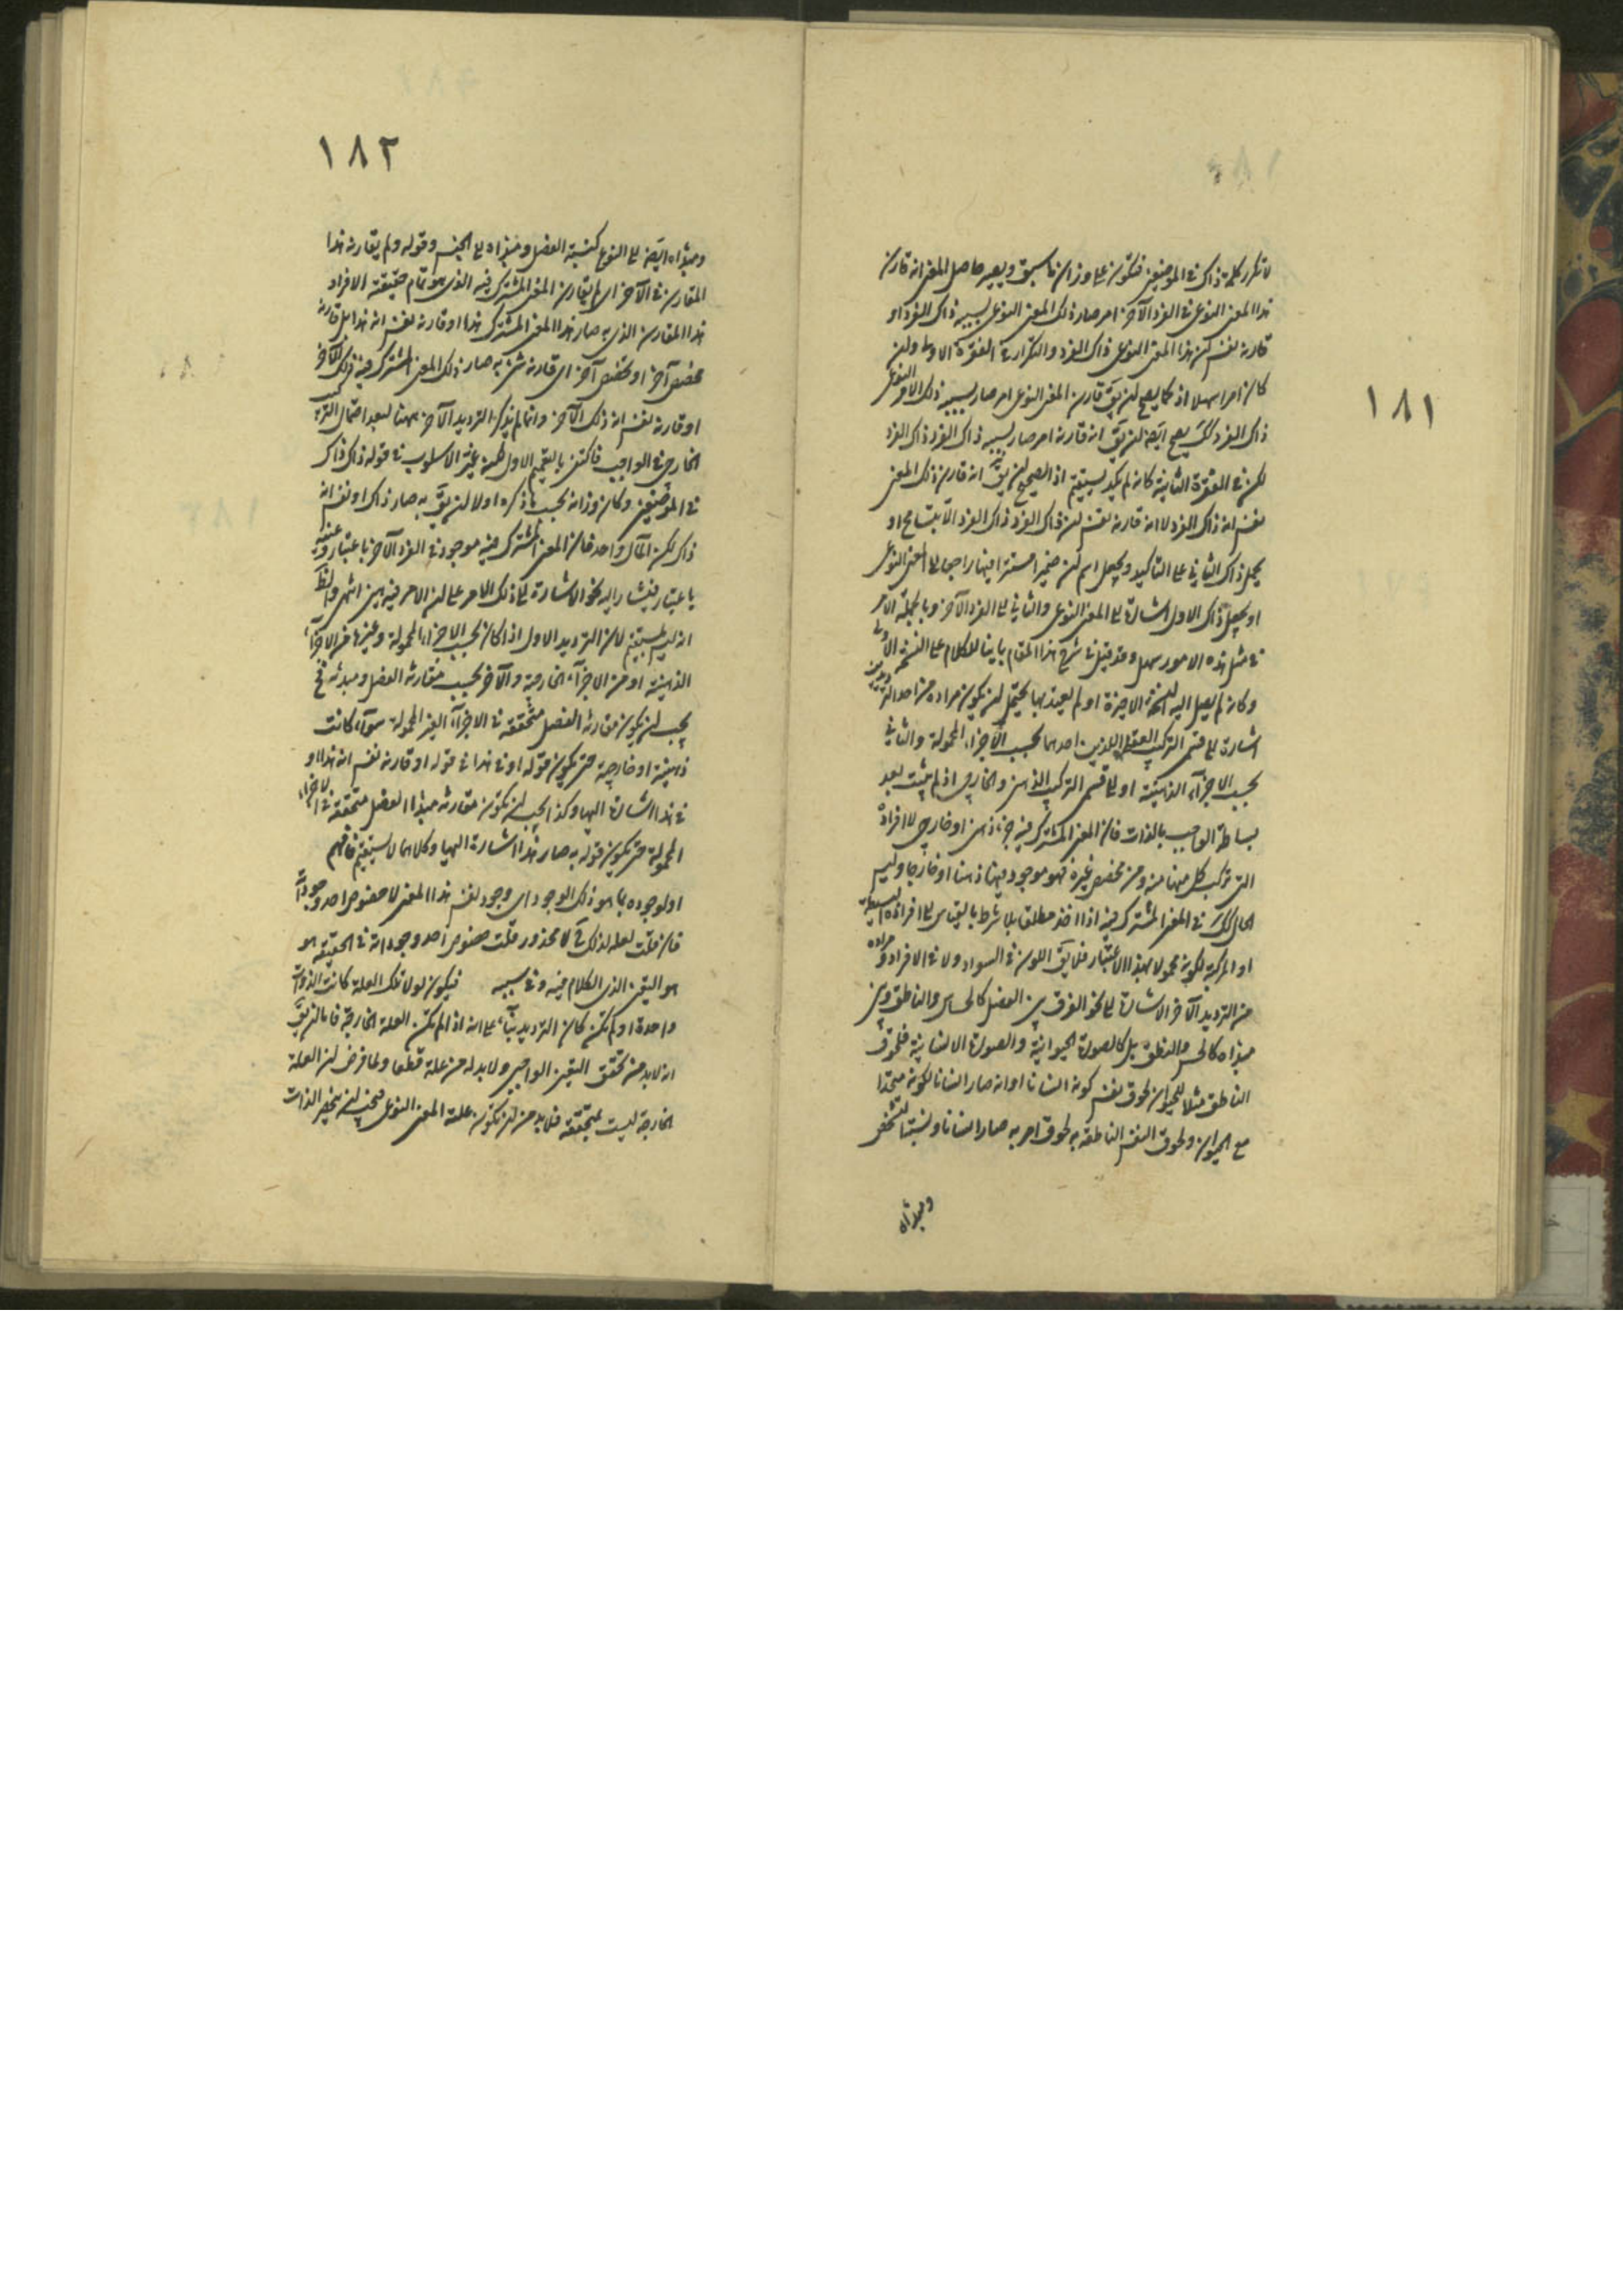 ١٨١
لا تكرر كلمة ذاك في الموضعين فتكون على وزان ما سبق ويصير حاصل المعنى انه قارن
هذا المعنى النوعى في الفرد الآخر امر صار ذلك المعنى النوعى بسببه ذاك الفرد او
قارنه نفس كون هذا المعنى النوعى ذاك الفرد والتكرار في الفقرة الاولى ولن
كان امرا سهلا اذ كما يصح لن يق قارن المعنى النوعى امر صار بسببه ذلك الامر النوعى
ذاك الفرد كك يصح ايضه لن يق انه قارنه امر صار بسببه ذاك الفرد ذاك الفرد
لكن في الفقرة الثانية كانه لم يكد يستقيم اذ الصحيح لن يق انه قارن ذلك المعنى
نفس انه ذاك الفرد لا انه قارنه نفس لن ذاك الفرد ذاك الفرد الا بتسامح او
يحمل ذاك الثاني على التاكيد ويجعل اسم لن ضميرا مستترا فيها راجعا الى المعنى النوعى
او يجعل ذاك الاول اشارة الى المعنى النوعى والثاني الى الفرد الآخر وبالجملة الامر
في مثل هذه الامور سهل وقد قيل في شرح هذا المقام بانيا للكلام على النسخة الاولى
وكانه لم يصل اليه النسخة الاخيرة او لم يعتد بها يحتمل لن يكون مراده من احد الترديدين
اشارة الى قسمى التركيب العقلى اللذين احدهما بحسب الاجزاء المحمولة والثاني
بحسب الاجزاء الذهنية او الى قسمى التركيب الذهنى والخارجى اذ لم يثبت بعد
بساطة الواجب بالذات فان المعنى المشترك فيه جزء ذهنى او خارجى لافراده
التى تركب كل منها منه ومن مخصص غيره فهو موجود فيها ذهنا او خارجا وليس
الحال كك في المعنى المشترك فيه اذا اخذ مطلقا بلا شرط بالقياس الى افراده البسيطة
او المركبة لكونه محمولا بهذا الاعتبار فلا يق اللون في السواد ولا في الافراد ومراده
من الترديد الآخر الاشارة الى نحو الفرق بين الفصل كالحساس والناطق وبين
مبدأه كالحس والنطق بل كالصورة الحيوانية والصورة الانسانية فلحوق
الناطق مثلا للحيوان لحوق نفس كونه انسانا او انه صار انسانا لكونه متحدا
مع الحيوان ولحوق النفس الناطقة به لحوق امر به صار انسانا ونسبة التشخص
ومبدأه
١٨٢
ومبدأه ايضه الى النوع كنسبة الفصل ومبدأه الى الجنس وقوله ولم يقارنه هذا
المقارن في الآخر اى لم يقارن المعنى المشترك فيه الذى هو تمام حقيقة الافراد
هذا المقارن الذى به صار هذا المعنى المشترك هذا او قارنه نفس انه هذا بل قارنه
مخصص آخر او تخصص آخر اى قارنه شئ به صار ذلك المعنى المشترك فيه ذلك الآخر
او قارنه نفس انه ذلك الآخر وانما لم يذكر الترديد الآخر ههنا لبعد احتمال التركيب
الخارجى في الواجب فاكتفى بالقسم الاول لكنه غير الاسلوب في قوله ذاك ذاك
في الموضعين وكان وزانه بحسب ما ذكره اولا لن يق به صار ذاك او نفس انه
ذاك لكن المآل واحد فان المعنى المشترك فيه موجود في الفرد الآخر باعتبار وعينه
باعتبار فيشار اليه نحو الاشارة الى ذلك الامر على لن الامر فيه هين انتهى والظ
انه ليس بمستقيم لان الترديد الاول اذا كان بحسب الاجزاء المحمولة وغيرها من الاجزاء
الذهنية او من الاجزاء الخارجية والآخر بحسب مقارنة الفصل ومبدئه فح
يجب لن يكون مقارنة الفصل متحققة في الاجزاء الغير المحمولة سواء كانت
ذهنية او خارجية حتى يكون قوله او في هذا في قوله او قارنه نفس انه هذا او
في هذا اشارة اليها وكذا يجب لن يكون مقارنة مبدأ الفصل متحققة في الاجزاء
المحمولة حتى يكون قوله به صار هذا اشارة اليها وكلاهما لا يستقيم فافهم
او لوجوده بما هو ذلك الوجود اى وجود نفس هذا المعنى لا خصوص احد وجوداته
فان قلت لعله لذلك لا محذور قلت خصوص احد وجوداته في الحقيقة هو
هو التعين الذى الكلام فيه وفي سببه فيكون لولا تلك العلة كانت الذوات
واحدة او لم تكن كان الترديد بناء على انه اذا لم تكن العلة الخارجة فاما لن يق
انه لا بد من تحقق التعين الواجبى ولا بد له من علة قطعا ولما فرض لن العلة
الخارجة ليست بمتحققة فلا بد من لن تكون علة المعنى النوعى فيجب لن ينحصر الذات